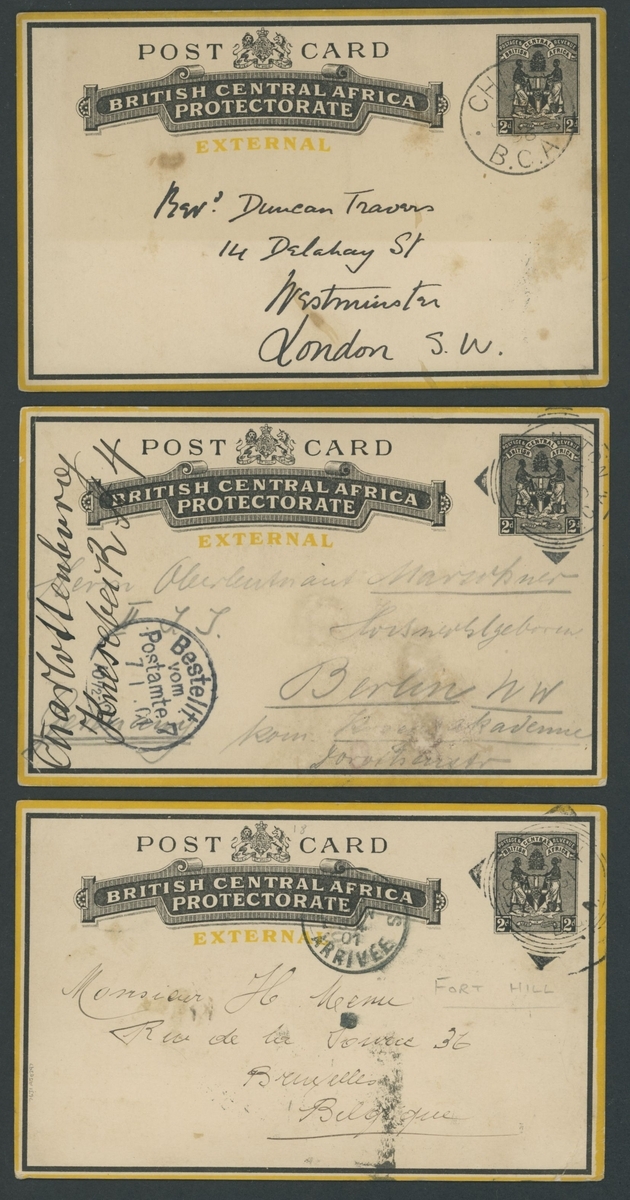 POST CARD
BRITISH CENTRAL AFRICA
PROTECTORATE
EXTERNAL
POSTAGE REVENUE
BRITISH CENTRAL AFRICA
2d 2d
CH
B.C.A.
Revd. Duncan Travers
14 Delahay St
Westminster
London S. W.
POST CARD
BRITISH CENTRAL AFRICA
PROTECTORATE
EXTERNAL
POSTAGE REVENUE
BRITISH CENTRAL AFRICA
2d 2d
Charlottenburg
Knesebeckstr 4
Herrn Oberleutnant Marschner
Hochwohlgeboren
Berlin NW
Kriegsakademie
Bestellt
vom
Postamte 7
7 1
POST CARD
BRITISH CENTRAL AFRICA
PROTECTORATE
EXTERNAL
POSTAGE REVENUE
BRITISH CENTRAL AFRICA
2d 2d
01
ARRIVÉE
Monsieur H Menu
FORT HILL
Rue de la 36
Bruxelles
Belgique